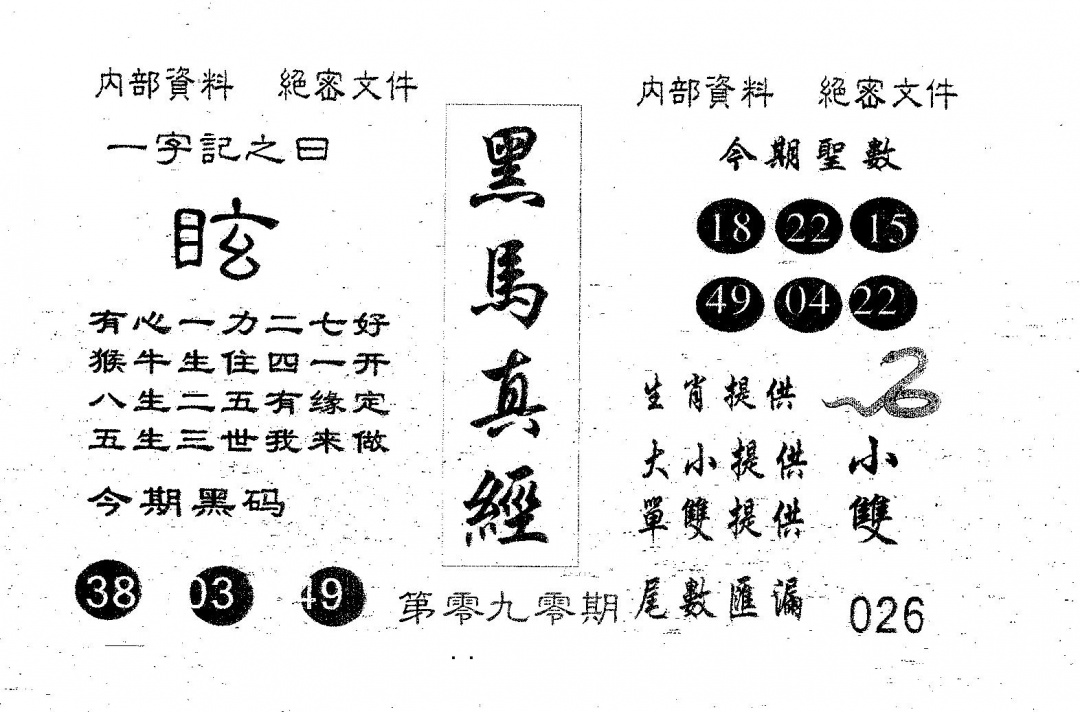 内部資料 絕密文件
一字記之曰
眩
有心一力二七好
猴牛生住四一开
八生二五有缘定
五生三世我来做
今期黑码
38 03 49
黑馬真經
第零九零期
内部資料 絕密文件
今期聖數
18 22 15
49 04 22
生肖提供
大小提供 小
單雙提供 雙
尾數匯漏 026